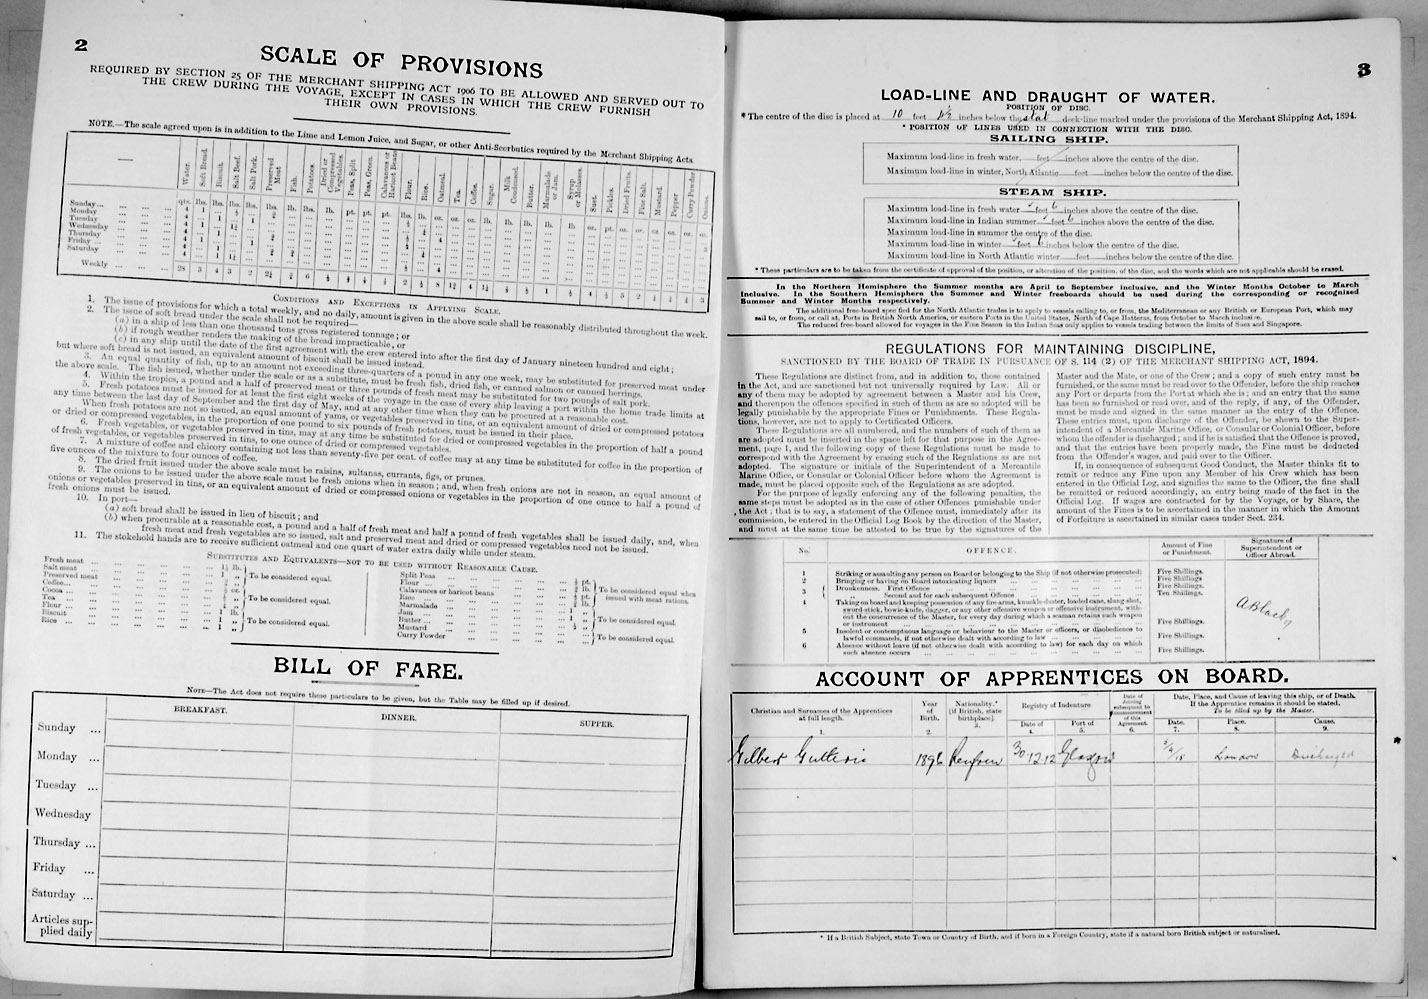 2
SCALE OF PROVISIONS
REQUIRED BY SECTION 25 OF THE MERCHANT SHIPPING ACT 1906 TO BE ALLOWED AND SERVED OUT TO
THE CREW DURING THE VOYAGE, EXCEPT IN CASES IN WHICH THE CREW FURNISH
THEIR OWN PROVISIONS.
NOTE.—The scale agreed upon is in addition to the Lime and Lemon Juice, and Sugar, or other Anti-Scorbutics required by the Merchant Shipping Acts.
Water. Soft Bread. Biscuit. Salt Beef. Salt Pork. Preserved Meat Fish. Potatoes. Dried or Compressed Vegetables. Peas, Split Peas, Green. Calavances or Haricot Beans Flour. Rice. Oatmeal. Tea. Coffee. Sugar. Milk Condensed. Butter. Marmalade or Jam. Syrup or Molasses. Suet. Pickles. Dried Fruits. Fine Salt. Mustard. Pepper Curry Powder Onions.
Sunday...
Monday
Tuesday
Wednesday
Thursday
Friday ...
Saturday
Weekly
CONDITIONS AND EXCEPTIONS IN APPLYING SCALE.
1. The issue of provisions for which a total weekly, and no daily, amount is given in the above scale shall be reasonably distributed throughout the week.
2. The issue of soft bread under the scale shall not be required—
(a) in a ship of less than one thousand tons gross registered tonnage; or
(b) if rough weather renders the making of the bread impracticable, or
(c) in any ship until the date of the first agreement with the crew entered into after the first day of January nineteen hundred and eight;
but where soft bread is not issued, an equivalent amount of biscuit shall be issued instead.
3. An equal quantity of fish, up to an amount not exceeding three-quarters of a pound in any one week, may be substituted for preserved meat under
the above scale. The fish issued, whether under the scale or as a substitute, must be fresh fish, dried fish, or canned salmon or canned herrings.
4. Within the tropics, a pound and a half of preserved meat or three pounds of fresh meat may be substituted for two pounds of salt pork.
5. Fresh potatoes must be issued for at least the first eight weeks of the voyage in the case of every ship leaving a port within the home trade limits at
any time between the last day of September and the first day of May, and at any other time when they can be procured at a reasonable cost.
When fresh potatoes are not so issued, an equal amount of yams, or vegetables preserved in tins, or an equivalent amount of dried or compressed potatoes
or dried or compressed vegetables, in the proportion of one pound to six pounds of fresh potatoes, must be issued in their place.
6. Fresh vegetables, or vegetables preserved in tins, may at any time be substituted for dried or compressed vegetables in the proportion of half a pound
of fresh vegetables, or vegetables preserved in tins, to one ounce of dried or compressed vegetables.
7. A mixture of coffee and chicory containing not less than seventy-five per cent. of coffee may at any time be substituted for coffee in the proportion of
five ounces of the mixture to four ounces of coffee.
8. The dried fruit issued under the above scale must be raisins, sultanas, currants, figs, or prunes.
9. The onions to be issued under the above scale must be fresh onions when in season; and, when fresh onions are not in season, an equal amount of
onions or vegetables preserved in tins, or an equivalent amount of dried or compressed onions or vegetables in the proportion of one ounce to half a pound of
fresh onions must be issued.
10. In port—
(a) soft bread shall be issued in lieu of biscuit; and
(b) when procurable at a reasonable cost, a pound and a half of fresh meat and half a pound of fresh vegetables shall be issued daily, and, when
fresh meat and fresh vegetables are so issued, salt and preserved meat and dried or compressed vegetables need not be issued.
11. The stokehold hands are to receive sufficient oatmeal and one quart of water extra daily while under steam.
SUBSTITUTES AND EQUIVALENTS—NOT TO BE USED WITHOUT REASONABLE CAUSE.
Fresh meat
Salt meat
Preserved meat
To be considered equal.
Coffee...
Cocoa ...
Tea
To be considered equal.
Flour ...
Biscuit
Rice ...
To be considered equal.
Split Peas
Flour
Calavances or haricot beans
Rice
To be considered equal when
issued with meat rations.
Marmalade
Jam
Butter ...
To be considered equal.
Mustard
Curry Powder
To be considered equal.
BILL OF FARE.
NOTE—The Act does not require these particulars to be given, but the Table may be filled up if desired.
BREAKFAST. DINNER. SUPPER.
Sunday ...
Monday ...
Tuesday ...
Wednesday
Thursday ...
Friday ...
Saturday ...
Articles sup-
plied daily
3
LOAD-LINE AND DRAUGHT OF WATER.
POSITION OF DISC.
* The centre of the disc is placed at 10 feet inches below the deck-line marked under the provisions of the Merchant Shipping Act, 1894.
* POSITION OF LINES USED IN CONNECTION WITH THE DISC.
SAILING SHIP.
Maximum load-line in fresh water, feet inches above the centre of the disc.
Maximum load-line in winter, North Atlantic feet inches below the centre of the disc.
STEAM SHIP.
Maximum load-line in fresh water feet 6 inches above the centre of the disc.
Maximum load-line in Indian summer feet 6 inches above the centre of the disc.
Maximum load-line in summer the centre of the disc.
Maximum load-line in winter feet 6 inches below the centre of the disc.
Maximum load-line in North Atlantic winter feet inches below the centre of the disc.
* These particulars are to be taken from the certificate of approval of the position, or alteration of the position, of the disc, and the words which are not applicable should be erased.
In the Northern Hemisphere the Summer months are April to September inclusive, and the Winter Months October to March
inclusive. In the Southern Hemisphere the Summer and Winter freeboards should be used during the corresponding or recognised
Summer and Winter Months respectively.
The additional free-board specified for the North Atlantic trades is to apply to vessels sailing to, or from, the Mediterranean or any British or European Port, which may
sail to, or from, or call at, Ports in British North America, or eastern Ports in the United States, North of Cape Hatteras, from October to March inclusive.
The reduced free-board allowed for voyages in the Fine Season in the Indian Seas only applies to vessels trading between the limits of Suez and Singapore.
REGULATIONS FOR MAINTAINING DISCIPLINE,
SANCTIONED BY THE BOARD OF TRADE IN PURSUANCE OF S. 114 (2) OF THE MERCHANT SHIPPING ACT, 1894.
These Regulations are distinct from, and in addition to, those contained
in the Act, and are sanctioned but not universally required by Law. All or
any of them may be adopted by agreement between a Master and his Crew,
and thereupon the offences specified in such of them as are so adopted will be
legally punishable by the appropriate Fines or Punishments. These Regula-
tions, however, are not to apply to Certificated Officers.
These Regulations are all numbered, and the numbers of such of them as
are adopted must be inserted in the space left for that purpose in the Agree-
ment, page 1, and the following copy of these Regulations must be made to
correspond with the Agreement by erasing such of the Regulations as are not
adopted. The signature or initials of the Superintendent of a Mercantile
Marine Office, or Consular or Colonial Officer before whom the Agreement is
made, must be placed opposite such of the Regulations as are adopted.
For the purpose of legally enforcing any of the following penalties, the
same steps must be adopted as in the case of other Offences punishable under
the Act; that is to say, a statement of the Offence must, immediately after its
commission, be entered in the Official Log Book by the direction of the Master,
and must at the same time be attested to be true by the signatures of the
Master and the Mate, or one of the Crew; and a copy of such entry must be
furnished, or the same must be read over to the Offender, before the ship reaches
any Port or departs from the Port at which she is; and an entry that the same
has been so furnished or read over, and of the reply, if any, of the Offender,
must be made and signed in the same manner as the entry of the Offence.
These entries must, upon discharge of the Offender, be shewn to the Super-
intendent of a Mercantile Marine Office, or Consular or Colonial Officer, before
whom the offender is discharged; and if he is satisfied that the Offence is proved,
and that the entries have been properly made, the Fine must be deducted
from the Offender's wages, and paid over to the Officer.
If, in consequence of subsequent Good Conduct, the Master thinks fit to
remit or reduce any Fine upon any Member of his Crew which has been
entered in the Official Log, and signifies the same to the Officer, the fine shall
be remitted or reduced accordingly, an entry being made of the fact in the
Official Log. If wages are contracted for by the Voyage, or by Share, the
amount of the Fines is to be ascertained in the manner in which the Amount
of Forfeiture is ascertained in similar cases under Sect. 234.
No. OFFENCE. Amount of Fine or Punishment. Signature of Superintendent or Officer Abroad.
1 Striking or assaulting any person on Board or belonging to the Ship (if not otherwise prosecuted) Five Shillings.
2 Bringing or having on Board intoxicating liquors Five Shillings.
3 Drunkenness. First Offence Five Shillings.
Second and for each subsequent Offence Ten Shillings.
4 Taking on board and keeping possession of any fire-arms, knuckle-duster, loaded cane, slung-shot,
sword-stick, bowie-knife, dagger, or any other offensive weapon or offensive instrument, with-
out the concurrence of the Master, for every day during which a seaman retains such weapon
or instrument Five Shillings.
5 Insolent or contemptuous language or behaviour to the Master or officers, or disobedience to
lawful commands, if not otherwise dealt with according to law Five Shillings.
6 Absence without leave (if not otherwise dealt with according to law) for each day on which
such absence occurs Five Shillings.
ACCOUNT OF APPRENTICES ON BOARD.
Christian and Surnames of the Apprentices at full length. 1.
Year of Birth. 2.
Nationality.* (if British, state birthplace) 3.
Registry of Indenture
Date of 4. Port of 5.
Date of Joining subsequent to commencement of this Agreement. 6.
Date, Place, and Cause of leaving this ship, or of Death.
If the Apprentice remains it should be stated.
To be filled up by the Master.
Date. 7. Place. 8. Cause. 9.
Gilbert Guthrie 1896 Renfrew 30 12 12 Glasgow London Discharged
* If a British Subject, state Town or Country of Birth, and if born in a Foreign Country, state if a natural born British subject or naturalised.